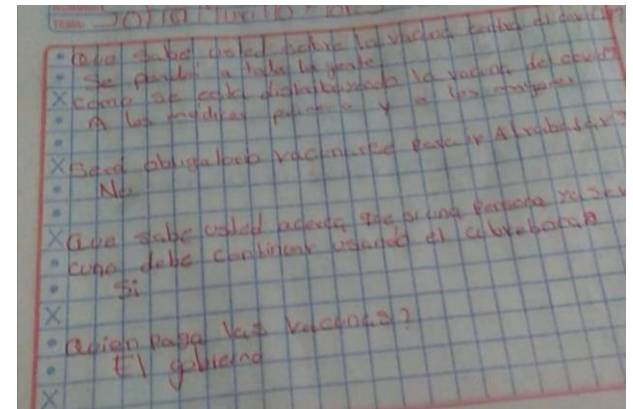 Que sabe usted sobre la vacuna contra el covid?
Se pondrá a toda la gente
Como se está distribuyendo la vacuna del covid?
A los médicos y a los mayores
Será obligatorio vacunarse para ir A trabajar?
No
Que sabe usted acerca que si una persona ya se va
cuno debe continuar usando el cubrebocas
Si
Quien paga las vacunas?
El gobierno